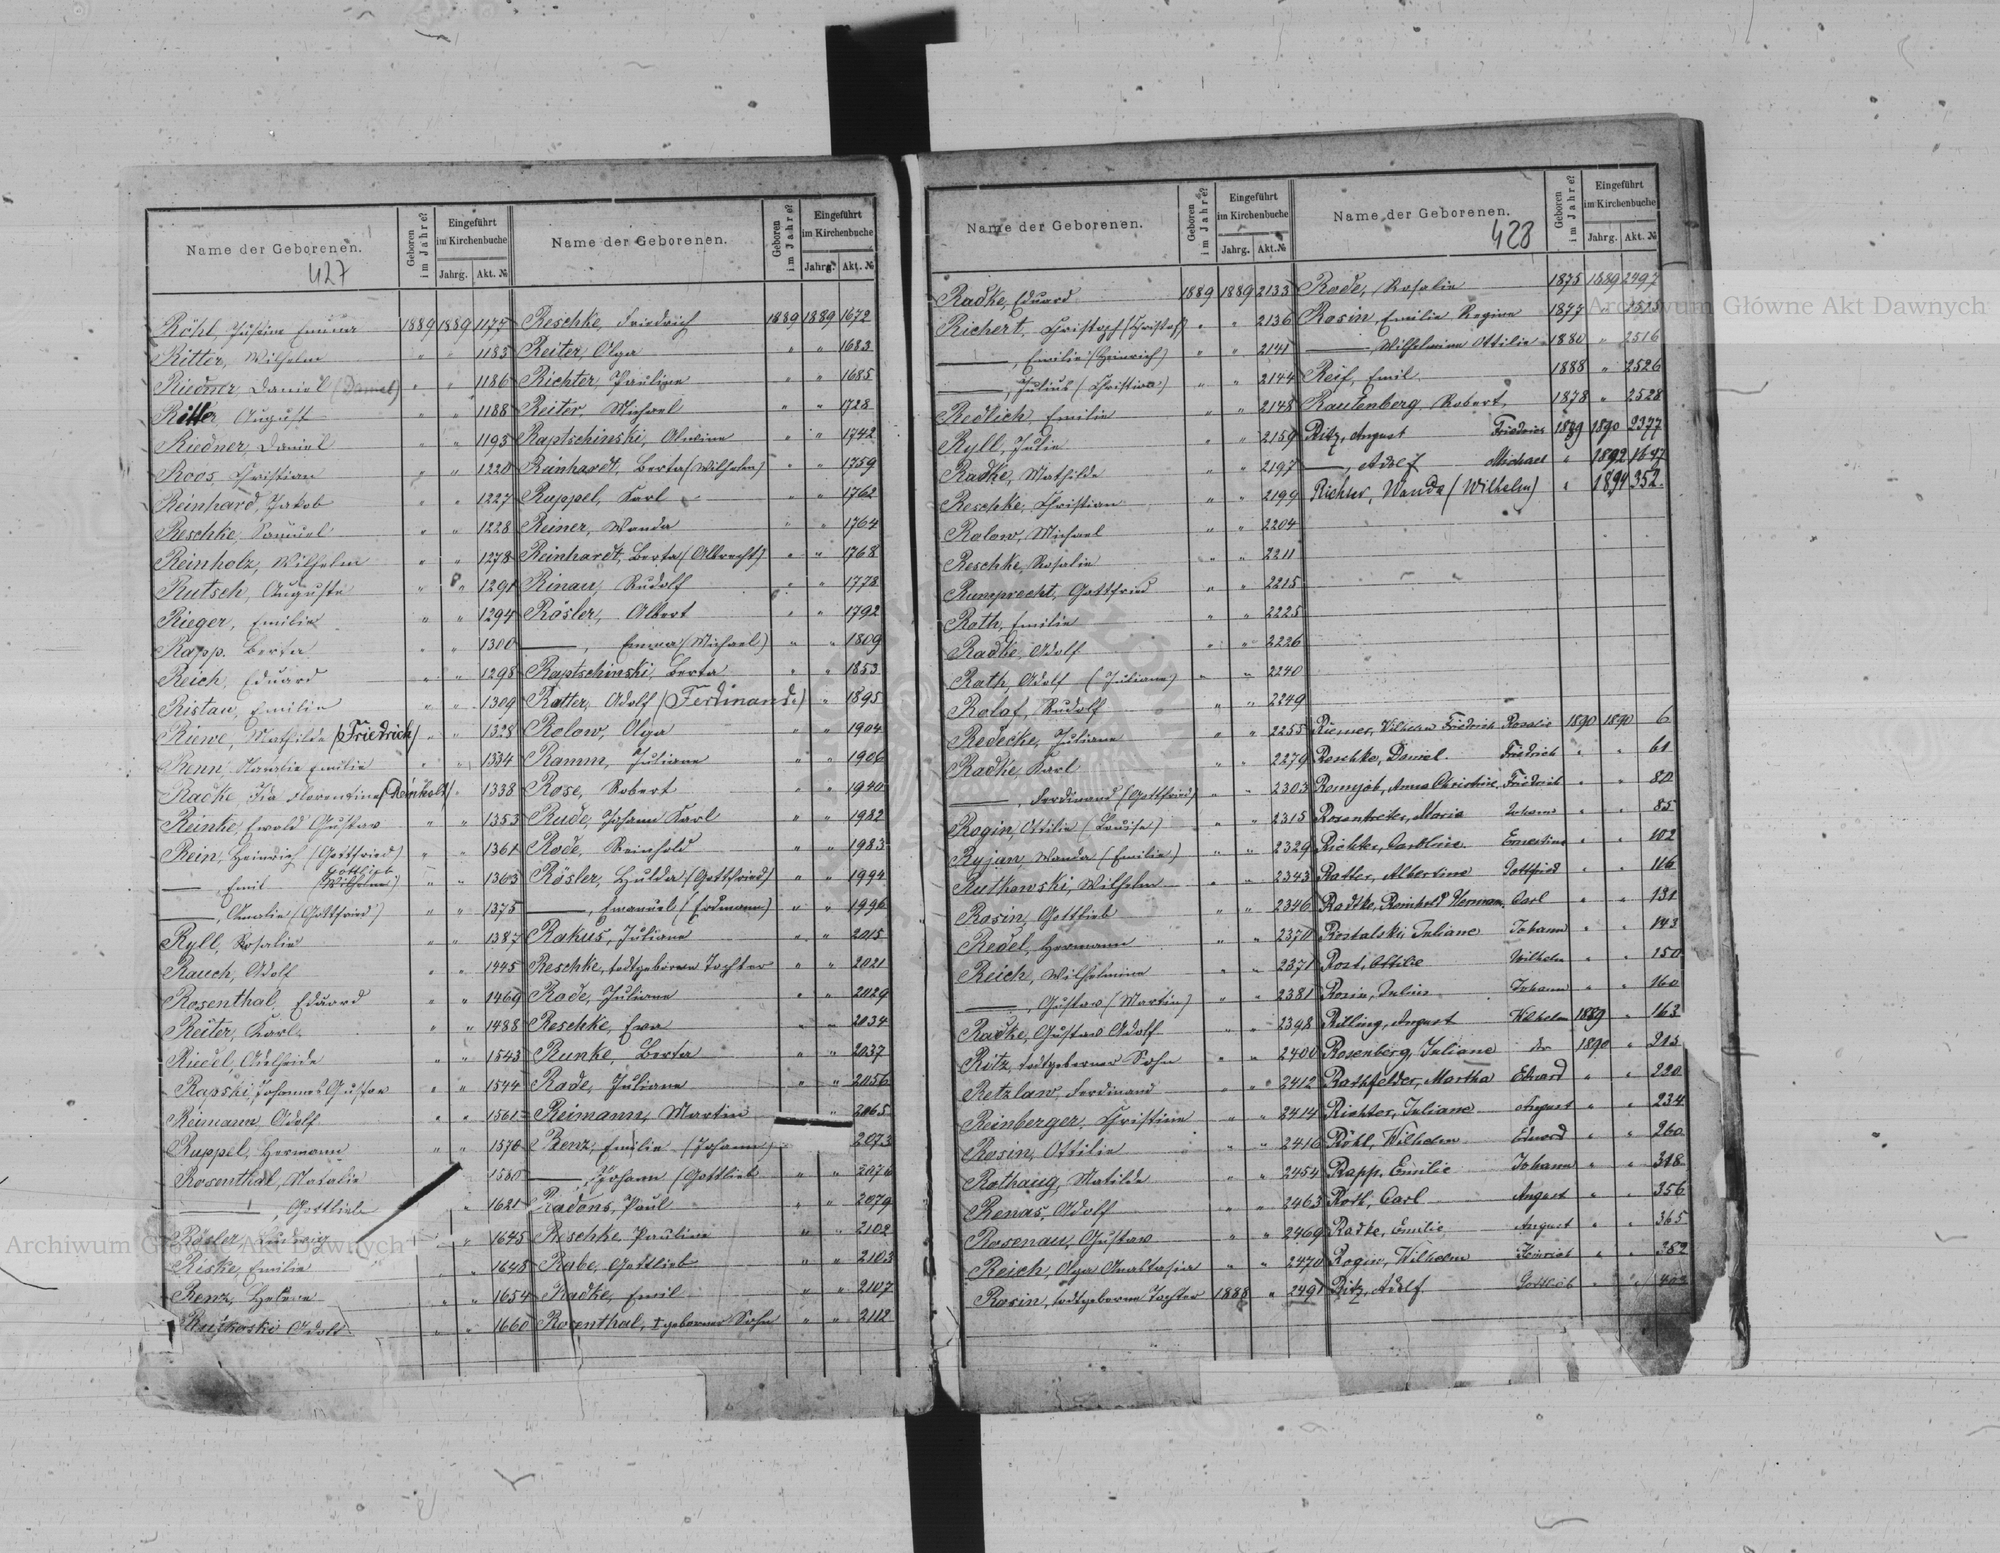 Name der Geborenen. Geboren im Jahre? Eingeführt im Kirchenbuche Jahrg. Akt. №
427
Röhl, Justine Emma 1889 1889 1177
Ritter, Wilhelm " " 1183
Riedner, Daniel (Daniel) " " 1186
Ritter, August " " 1188
Riedner, Daniel " " 1193
Roos, Christian " " 1220
Reinhard, Jakob " " 1227
Reschke, Samuel " " 1228
Reinholz, Wilhelm " " 1278
Rutsch, Auguste " " 1291
Rieger, Emilie " " 1294
Rapp, Berta " " 1300
Reich, Eduard " " 1298
Ristau, Emilie " " 1309
Riewe, Mathilde (Friedrich) " " 1328
Renn, Natalie Emilie " " 1334
Radke, Ida Florentine (Reinholt) " 1338
Reinke, Ewald Gustav " " 1353
Rein, Heinrich (Gottfried) " " 1361
——, Emil (Wilhelm) Gottlieb " " 1363
——, Amalie (Gottfried) " " 1375
Ryll, Rosalie " " 1387
Rauch, Adolf " " 1445
Rosenthal, Eduard " " 1469
Reiter, Karl " " 1488
Riedel, Adelheide " " 1543
Rapski, Johannes Gustav " " 1544
Reimann, Adolf " " 1561
Ruppel, Hermann " " 1576
Rosenthal, Natalie 1580
——, Gottlieb " 1621
Rösler, Ludwig " 1645
Riske, Emilie " " 1648
Renz, Helene " " 1654
Rutkowski Adolf " " 1660
Name der Geborenen. Geboren im Jahre? Eingeführt im Kirchenbuche Jahrg. Akt. №
Reschke, Friedrich 1889 1889 1672
Reiter, Olga " " 1683
Richter, Pauline " " 1685
Reiter, Michael " " 1728
Raptschinski, Alwine " " 1742
Reinhardt, Berta (Wilhelm) " " 1759
Ruppel, Karl " " 1762
Reiner, Wanda " " 1764
Reinhardt, Berta (Albrecht) " " 1768
Rinau, Rudolf " " 1778
Rösler, Albert " " 1792
——, Emma (Michael) " " 1809
Raptschinski, Berta " " 1853
Ratter, Adolf (Ferdinand) " 1895
Rolow, Olga " " 1904
Ramm, Juliane " " 1906
Rose, Robert " " 1940
Rude, Johann Karl " " 1982
Rode, Reinhold " " 1983
Rösler, Hulda (Gottfried) " " 1994
——, Emanuel (Erdmann) " " 1996
Rakus, Juliane " " 2015
Reschke, todtgeborene Tochter " " 2021
Rode, Juliane " " 2029
Reschke, Ewa " " 2034
Runke, Berta " " 2037
Rade, Juliane " " 2056
Reimann, Martin " 2065
Renz, Emilie (Johann) 2073
——, Johann (Gottlieb " " 2076
Radons, Paul " " 2079
Reschke Pauline " " 2102
Rabe, Gottlieb " " 2103
Radke, Emil " " 2107
Rosenthal, †geborner Sohn " " 2112
Name der Geborenen. Geboren im Jahre? Eingeführt im Kirchenbuche Jahrg. Akt. №
Radke, Eduard 1889 1889 2133
Richert, Christoph (Christof) " " 2136
——, Emilie (Heinrich) " " 2141
——, Julius (Christian) " " 2144
Redlich, Emilie " " 2148
Ryll, Julie " " 2159
Radke, Mathilde " " 2197
Reschke, Christian " " 2199
Rolow, Michael " " 2204
Reschke, Rosalie " " 2211
Rumprecht, Gottfried " " 2215
Roth, Emilie " " 2225
Radke, Adolf " " 2226
Rath, Adolf (Juliane) " " 2240
Rolof, Rudolf " " 2249
Redecke, Juliane " " 2255
Radke, Karl " " 2279
——, Ferdinand (Gottfried) " " 2303
Rogin, Ottilie (Louise) " " 2315
Ryjan, Wanda (Emilie) " " 2329
Rutkowski, Wilhelm " " 2343
Rosin, Gottlieb " " 2346
Redel, Hermann " " 2370
Reich, Wilhelmine " " 2371
——, Gustav (Martin) " " 2381
Radke, Gustav Adolf " " 2398
Ritz, todtgeborner Sohn " " 2400
Retzlaw, Ferdinand " " 2412
Reinberger, Christine " " 2414
Rosin, Ottilie " " 2416
Rothaug, Matilde " 2454
Renas, Adolf " " 2463
Rosenau, Gustav " " 2469
Reich, Olga Anastasia " " 2470
Rosin, todtgeborene Tochter 1888 " 2491
Name der Geborenen. Geboren im Jahre? Eingeführt im Kirchenbuche Jahrg. Akt. №
428
Rode, Rosalie 1875 1889 2497
Rosin, Emilie Regine 1877 " 2515
——, Wilhelmine Ottilie 1880 " 2516
Reif, Emil 1888 " 2526
Rautenberg, Robert 1878 " 2528
Ritz, August Friedrich 1889 1890 2377
——, Adolf Michael " 1892 1647
Richter, Wanda (Wilhelm) " 1894 352
Riemer, Wilhelm Friedrich Rosalie 1890 1890 6
Reschke, Daniel Friedrich " " 61
Romejob, Anna Christine Friedrich " " 80
Rosentreter, Maria Johann " " 85
Richter, Caroline Ernestine " " 102
Ratter, Albertine Gottfried " " 116
Radtke, Reinhold Herman Carl " " 131
Rostalski Juliane Johann " " 143
Rost, Ottilie Wilhelm " " 150
Rosin, Julius Johann " " 160
Rilling, August Wilhelm 1889 " 163
Rosenberg, Juliane do 1890 " 215
Rathfelder, Martha Eduard " " 220
Richter, Juliane August " " 234
Röhl, Wilhelm Eduard " " 260
Rapp, Emilie Johann " " 318
Roth, Carl August " " 356
Radke, Emilie August " " 365
Rogin, Wilhelm Heinrich " " 382
Ritz, Adolf Gottlieb " "
Archiwum Główne Akt Dawnych
Archiwum Główne Akt Dawnych